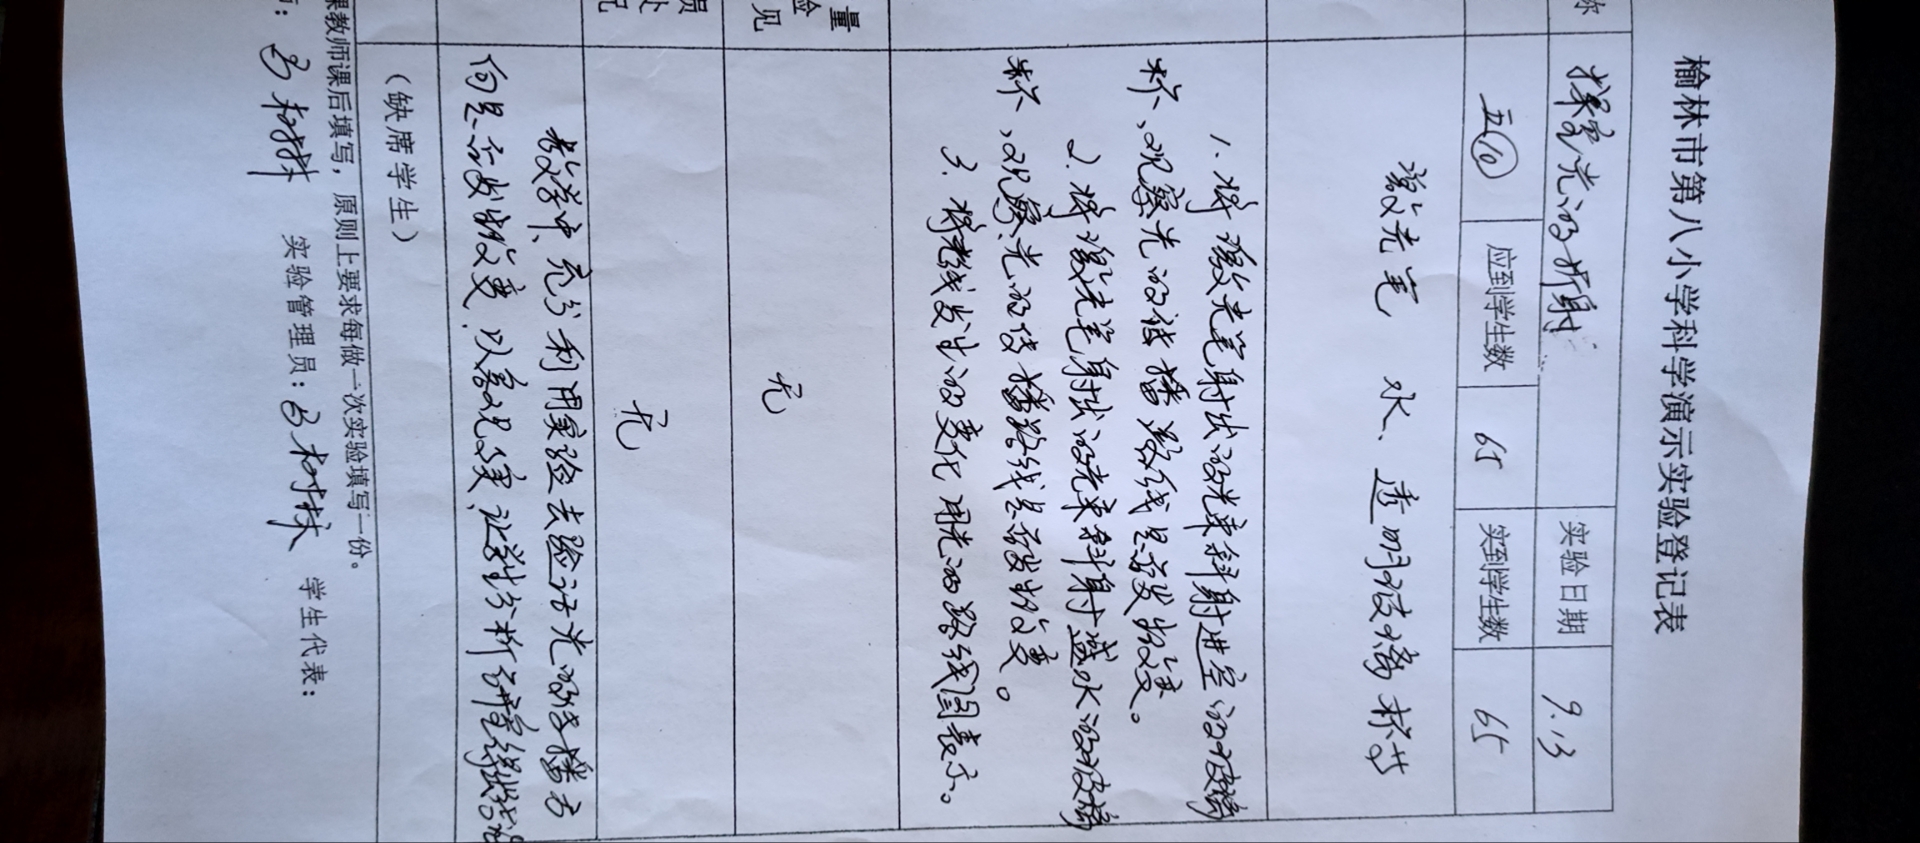 榆林市第八小学科学演示实验登记表
称 探究光的折射 实验日期 9.13
五⑩ 应到学生数 65 实到学生数 65
激光笔 水、透明玻璃杯子
1. 将激光笔射出的光束斜射进空的玻璃
杯、观察光的传播路线是否发生改变。
2. 将激光笔射出的光束斜射盛水的玻璃
杯、观察光的传播路线是否发生改变。
3. 将光线发生的变化用光的路线图表示。
量
验
见 无
员
处
况 无
教学中、充分利用实验去验证光的传播方
向是否发生改变、以客观事实、让学生分析
(缺席学生)
课教师课后填写，原则上要求每做一次实验填写一份。
实验管理员： 学生代表：